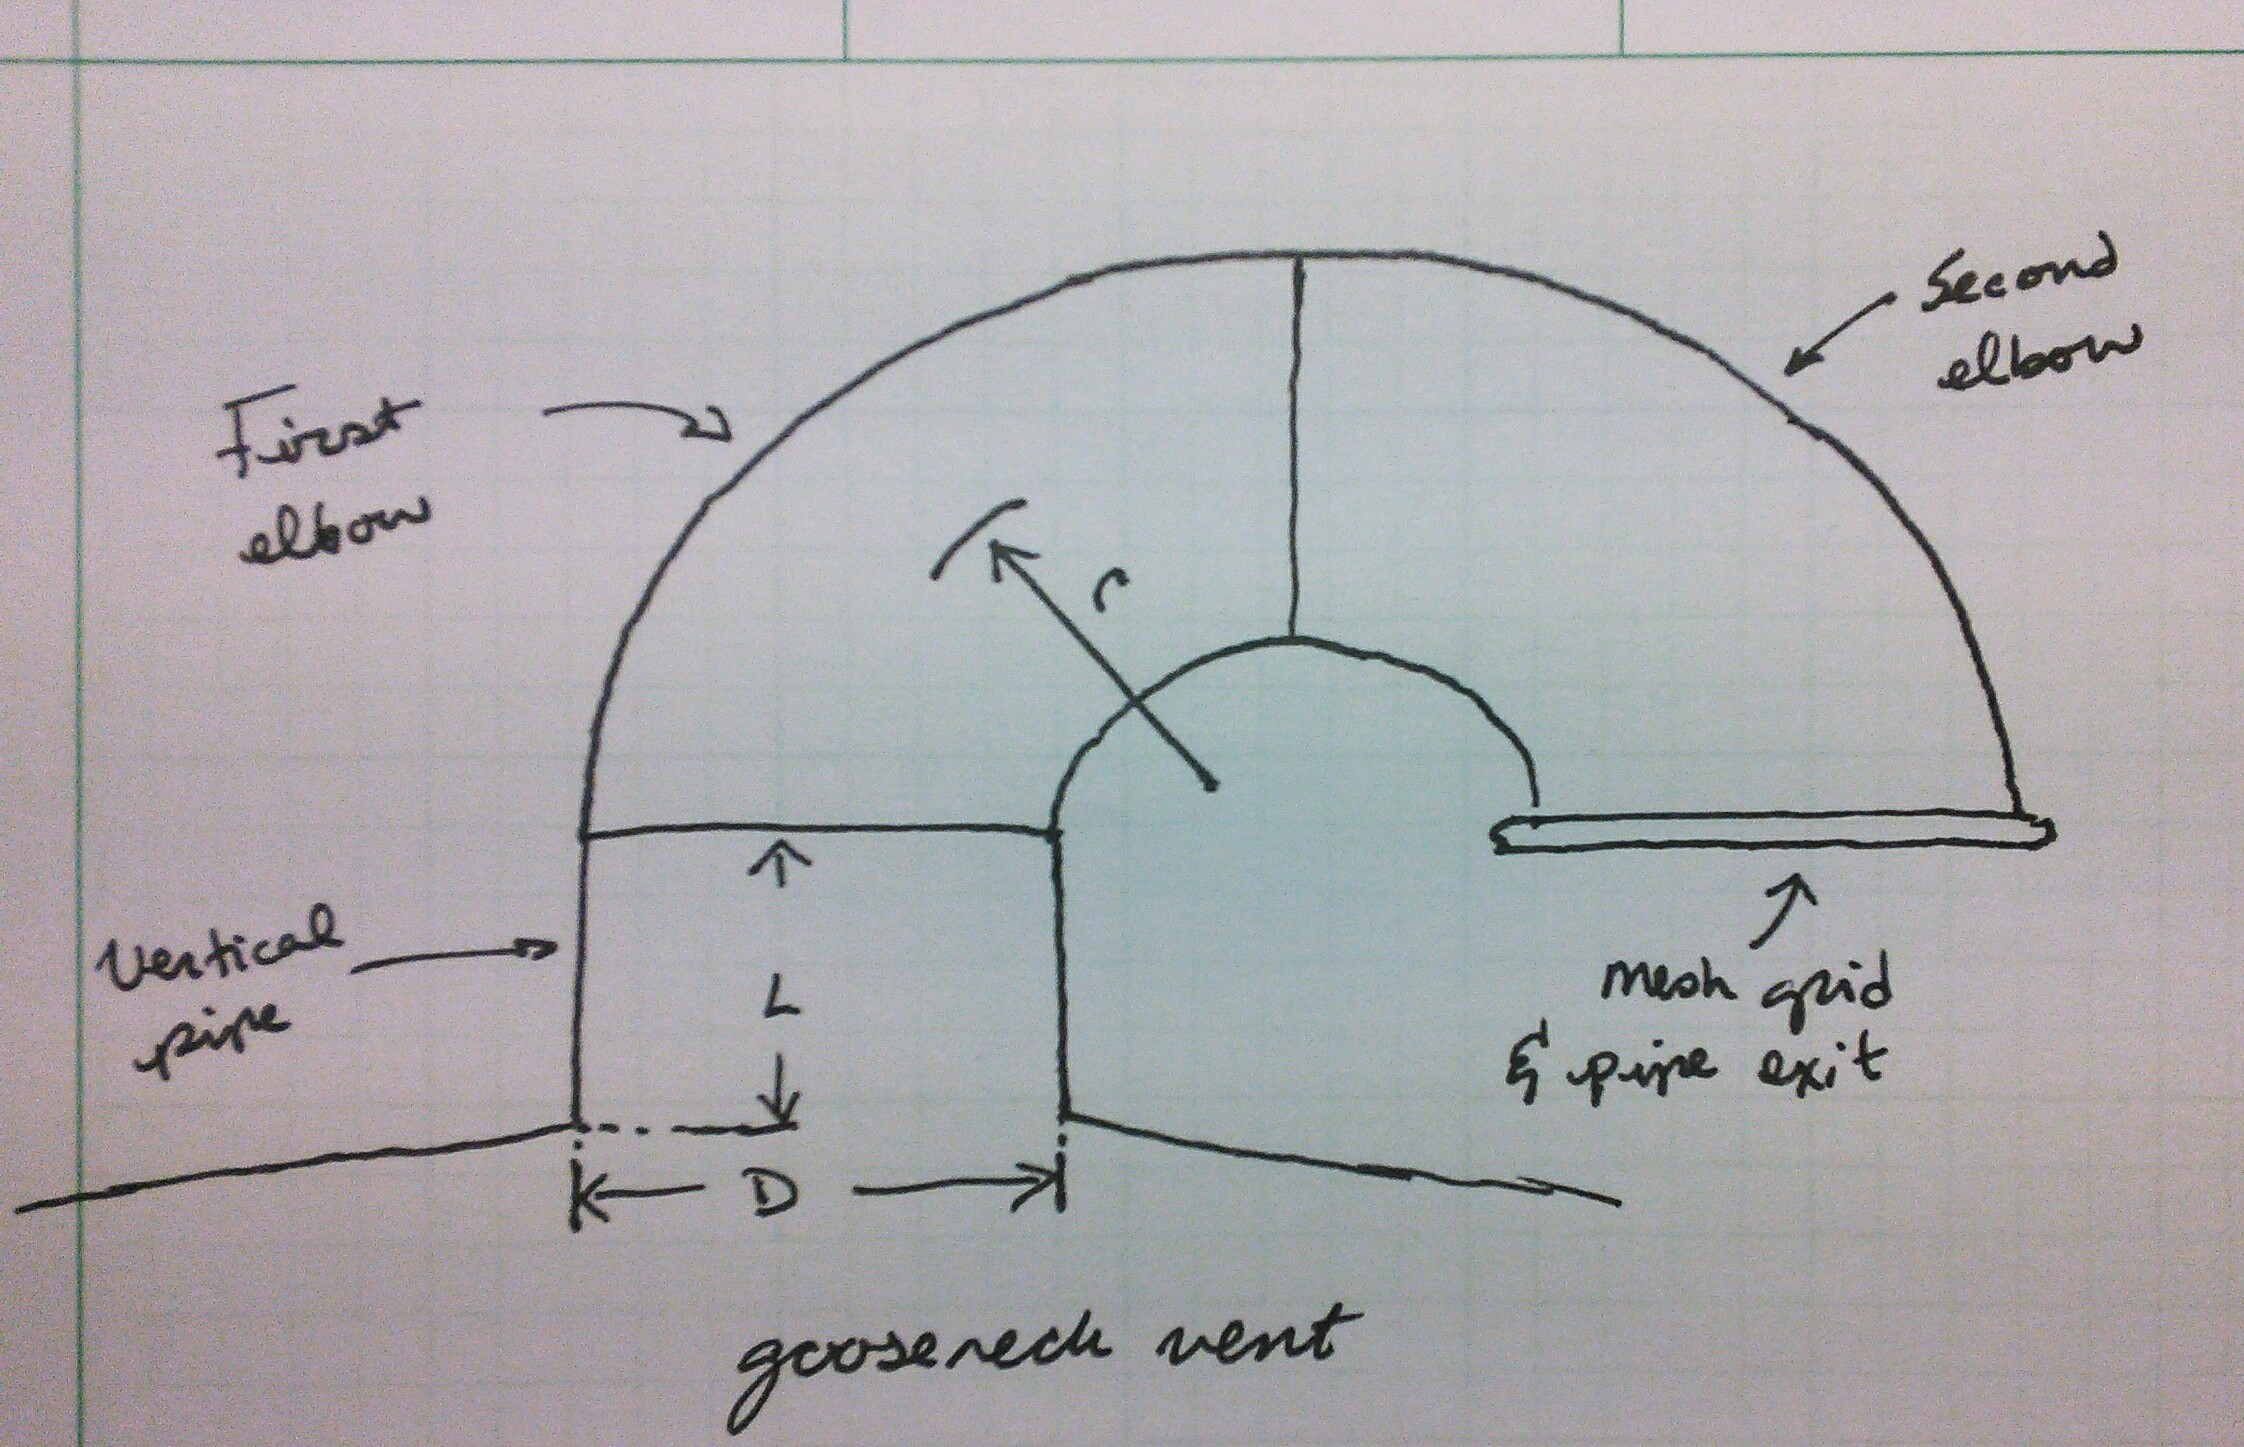 Second
elbow
First
elbow
r
Vertical
pipe
L
mesh grid
& pipe exit
D
gooseneck vent